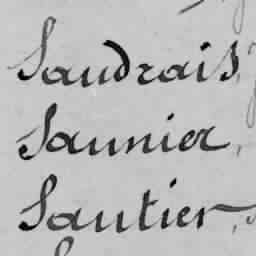 Saudrais,
Saunier,
Sautier,